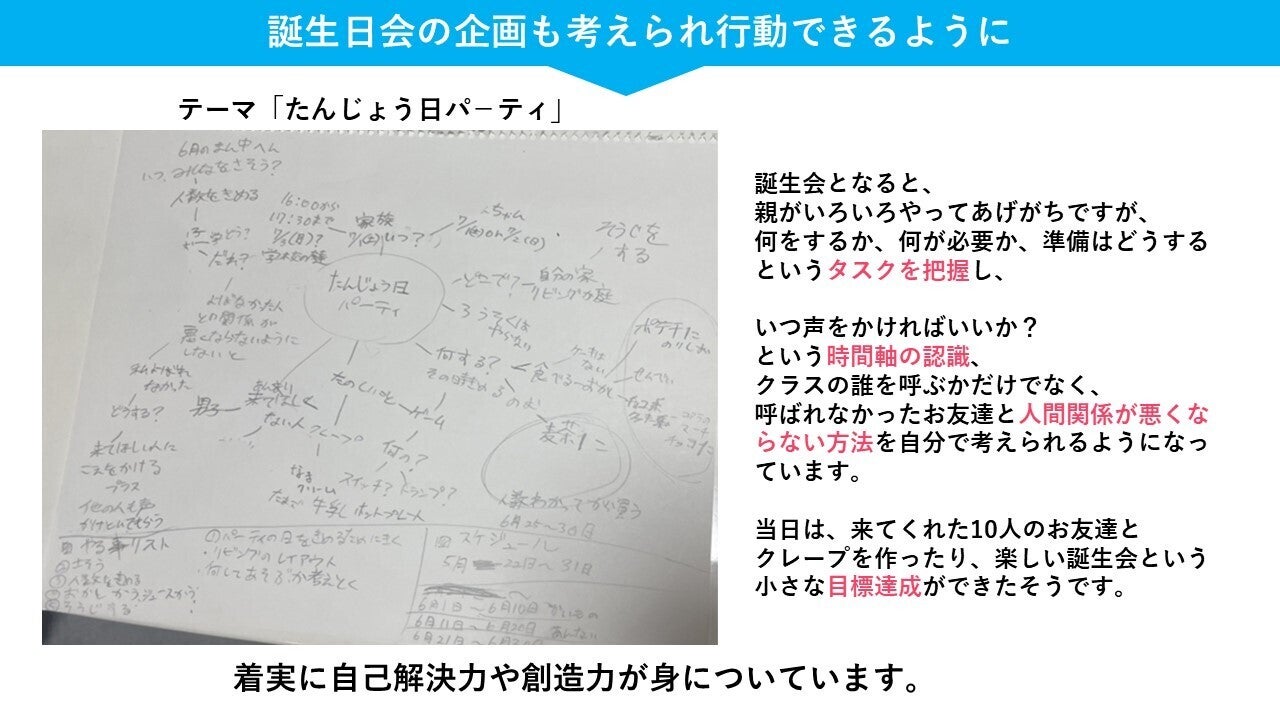 誕生日会の企画も考えられ行動できるように
テーマ「たんじょう日パーティ」
6月のまん中へん
いつ、みんなさそう?
人数をきめる
だれ?
16:00から
17:30まで
家族
いつ?
ちゃん
そうじを
する
たんじょう日
パーティ
どこで?
自分の家
リビングか庭
ろうそくは
やらない
よばなかった人
との関係が
悪くならないように
しないと
私よばれ
なかった
どうする?
来てほしい人に
こえをかける
プラス
他の人も声
男子
来てほしく
ない人
たのしいこと
クレープ
ゲーム
何の?
スイッチ?
トランプ?
なま
クリーム
たまご
牛乳
ホットプレート
何する?
その日きめる
食べる
おかし
ケーキは
ない
のむ
麦茶1こ
ポテチ1こ
のりしお
せんべい
人数わかってから買う
6月25~30日
やる事リスト
人数をきめる
そうじする
①パーティの日をきめるためにきく
・リビングのレイアウト
・何してあそぶか考えとく
スケジュール
5月
22日~31日
6月1日~6月10日
6月11日~6月20日
6月21日~
誕生会となると、
親がいろいろやってあげがちですが、
何をするか、何が必要か、準備はどうする
というタスクを把握し、
いつ声をかければいいか?
という時間軸の認識、
クラスの誰を呼ぶかだけでなく、
呼ばれなかったお友達と人間関係が悪くな
らない方法を自分で考えられるようになっ
ています。
当日は、来てくれた10人のお友達と
クレープを作ったり、楽しい誕生会という
小さな目標達成ができたそうです。
着実に自己解決力や創造力が身についています。